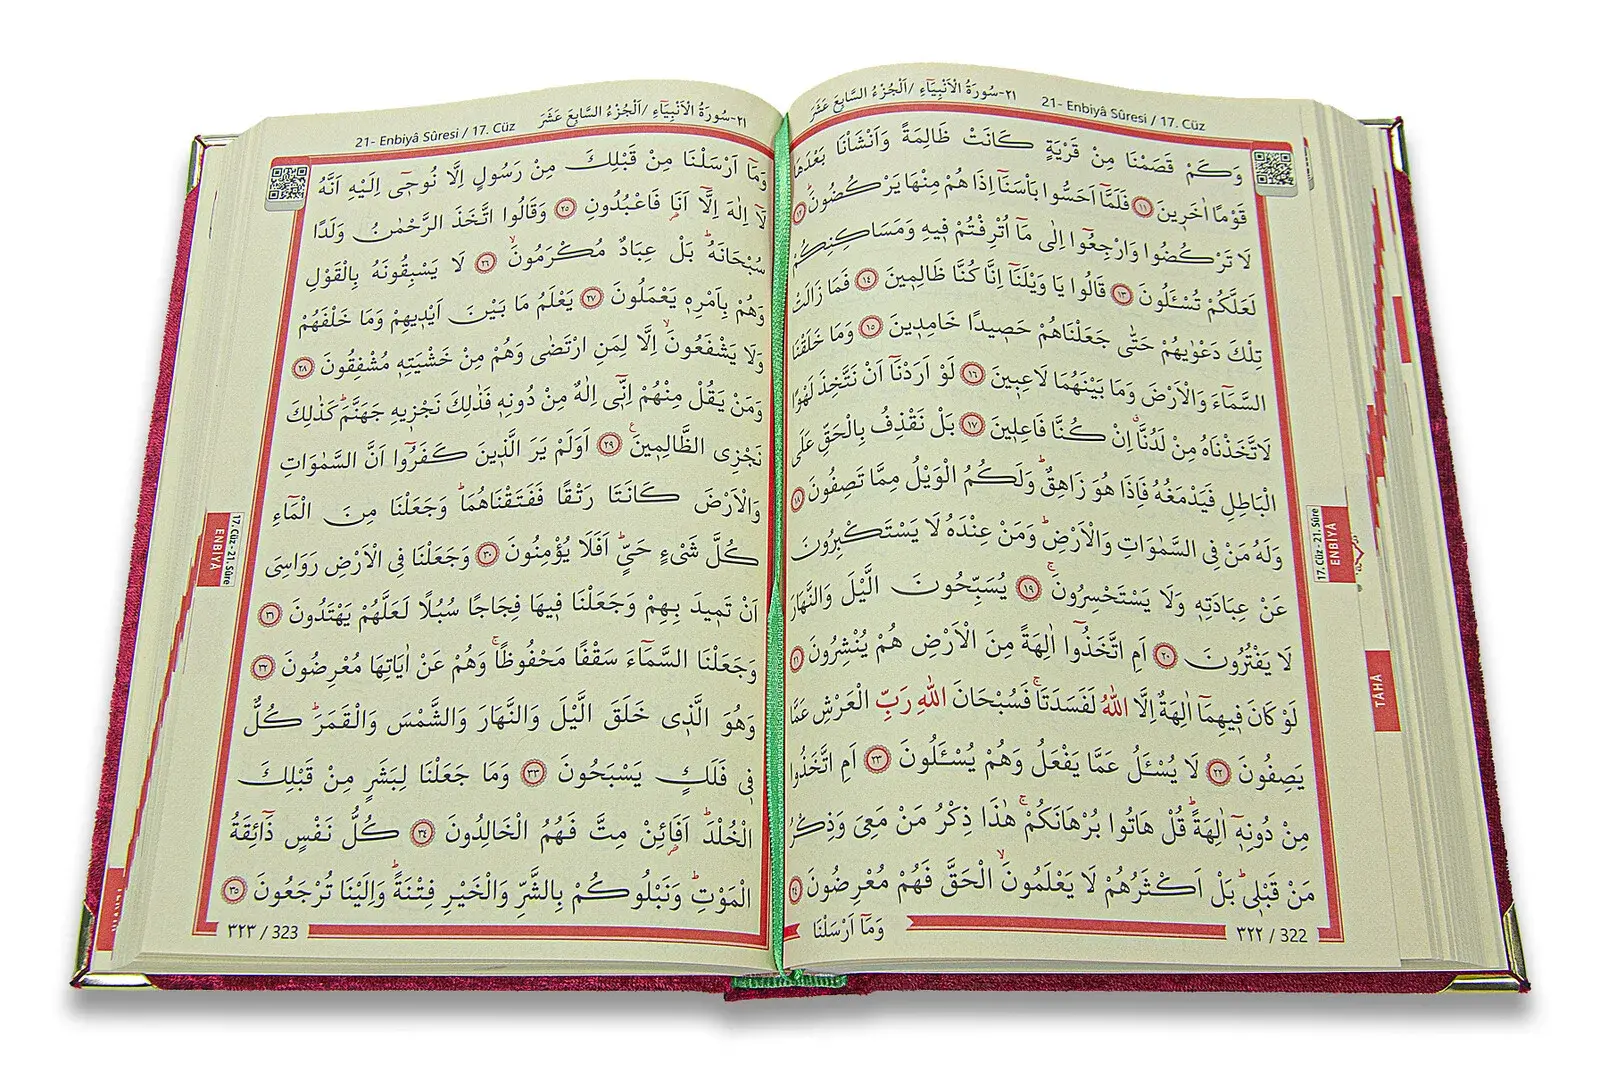 ٢١-سُورَةُ الْاَنْبِيَاءِ /اَلْجُزْءُ السَّابِعَ عَشَرَ 21- Enbiyâ Sûresi / 17. Cüz
وَكَمْ قَصَمْنَا مِنْ قَرْيَةٍ كَانَتْ ظَالِمَةً وَاَنْشَأْنَا بَعْدَهَا
قَوْمًا اٰخَرٖينَ ١١ فَلَمَّٓا اَحَسُّوا بَأْسَنَٓا اِذَا هُمْ مِنْهَا يَرْكُضُونَ ١٢
لَا تَرْكُضُوا وَارْجِعُٓوا اِلٰى مَٓا اُتْرِفْتُمْ فٖيهِ وَمَسَاكِنِكُمْ
لَعَلَّكُمْ تُسْـَٔلُونَ ١٣ قَالُوا يَا وَيْلَنَٓا اِنَّا كُنَّا ظَالِمٖينَ ١٤ فَمَا زَالَتْ
تِلْكَ دَعْوٰيهُمْ حَتّٰى جَعَلْنَاهُمْ حَصٖيدًا خَامِدٖينَ ١٥ وَمَا خَلَقْنَا
السَّمَٓاءَ وَالْاَرْضَ وَمَا بَيْنَهُمَا لَاعِبٖينَ ١٦ لَوْ اَرَدْنَٓا اَنْ نَتَّخِذَ لَهْوًا
لَاتَّخَذْنَاهُ مِنْ لَدُنَّاۗ اِنْ كُنَّا فَاعِلٖينَ ١٧ بَلْ نَقْذِفُ بِالْحَقِّ عَلَى
الْبَاطِلِ فَيَدْمَغُهُ فَاِذَا هُوَ زَاهِقٌۜ وَلَكُمُ الْوَيْلُ مِمَّا تَصِفُونَ ١٨
وَلَهُ مَنْ فِى السَّمٰوَاتِ وَالْاَرْضِۜ وَمَنْ عِنْدَهُ لَا يَسْتَكْبِرُونَ
عَنْ عِبَادَتِهٖ وَلَا يَسْتَحْسِرُونَۚ ١٩ يُسَبِّحُونَ الَّيْلَ وَالنَّهَارَ
لَا يَفْتُرُونَ ٢٠ اَمِ اتَّخَذُٓوا اٰلِهَةً مِنَ الْاَرْضِ هُمْ يُنْشِرُونَ ٢١
لَوْ كَانَ فٖيهِمَٓا اٰلِهَةٌ اِلَّا اللّٰهُ لَفَسَدَتَاۚ فَسُبْحَانَ اللّٰهِ رَبِّ الْعَرْشِ عَمَّا
يَصِفُونَ ٢٢ لَا يُسْـَٔلُ عَمَّا يَفْعَلُ وَهُمْ يُسْـَٔلُونَ ٢٣ اَمِ اتَّخَذُوا
مِنْ دُونِهٖٓ اٰلِهَةًۜ قُلْ هَاتُوا بُرْهَانَكُمْۚ هٰذَا ذِكْرُ مَنْ مَعِىَ وَذِكْرُ
مَنْ قَبْلٖىۜ بَلْ اَكْثَرُهُمْ لَا يَعْلَمُونَۙ الْحَقَّ فَهُمْ مُعْرِضُونَ ٢٤
٣٢٢ / 322
وَمَٓا اَرْسَلْنَا
17. Cüz - 21. Sûre
ENBİYÂ
TAHÂ
21- Enbiyâ Sûresi / 17. Cüz ٢١-سُورَةُ الْاَنْبِيَاءِ /اَلْجُزْءُ السَّابِعَ عَشَرَ
وَمَٓا اَرْسَلْنَا مِنْ قَبْلِكَ مِنْ رَسُولٍ اِلَّا نُوحٖٓى اِلَيْهِ اَنَّهُ
لَٓا اِلٰهَ اِلَّٓا اَنَا۬ فَاعْبُدُونِ ٢٥ وَقَالُوا اتَّخَذَ الرَّحْمٰنُ وَلَدًا
سُبْحَانَهُۜ بَلْ عِبَادٌ مُكْرَمُونَۙ ٢٦ لَا يَسْبِقُونَهُ بِالْقَوْلِ
وَهُمْ بِاَمْرِهٖ يَعْمَلُونَ ٢٧ يَعْلَمُ مَا بَيْنَ اَيْدٖيهِمْ وَمَا خَلْفَهُمْ
وَلَا يَشْفَعُونَۙ اِلَّا لِمَنِ ارْتَضٰى وَهُمْ مِنْ خَشْيَتِهٖ مُشْفِقُونَ ٢٨
وَمَنْ يَقُلْ مِنْهُمْ اِنّٖٓى اِلٰهٌ مِنْ دُونِهٖ فَذٰلِكَ نَجْزٖيهِ جَهَنَّمَۜ كَذٰلِكَ
نَجْزِى الظَّالِمٖينَ۟ ٢٩ اَوَلَمْ يَرَ الَّذٖينَ كَفَرُٓوا اَنَّ السَّمٰوَاتِ
وَالْاَرْضَ كَانَتَا رَتْقًا فَفَتَقْنَاهُمَاۜ وَجَعَلْنَا مِنَ الْمَٓاءِ
كُلَّ شَىْءٍ حَىٍّۜ اَفَلَا يُؤْمِنُونَ ٣٠ وَجَعَلْنَا فِى الْاَرْضِ رَوَاسِىَ
اَنْ تَمٖيدَ بِهِمْ وَجَعَلْنَا فٖيهَا فِجَاجًا سُبُلًا لَعَلَّهُمْ يَهْتَدُونَ ٣١
وَجَعَلْنَا السَّمَٓاءَ سَقْفًا مَحْفُوظًاۚ وَهُمْ عَنْ اٰيَاتِهَا مُعْرِضُونَ ٣٢
وَهُوَ الَّذٖى خَلَقَ الَّيْلَ وَالنَّهَارَ وَالشَّمْسَ وَالْقَمَرَۜ كُلٌّ
فٖى فَلَكٍ يَسْبَحُونَ ٣٣ وَمَا جَعَلْنَا لِبَشَرٍ مِنْ قَبْلِكَ
الْخُلْدَۜ اَفَا۬ئِنْ مِتَّ فَهُمُ الْخَالِدُونَ ٣٤ كُلُّ نَفْسٍ ذَٓائِقَةُ
الْمَوْتِۜ وَنَبْلُوكُمْ بِالشَّرِّ وَالْخَيْرِ فِتْنَةًۜ وَاِلَيْنَا تُرْجَعُونَ ٣٥
٣٢٣ / 323
17. Cüz - 21. Sûre
ENBİYÂ